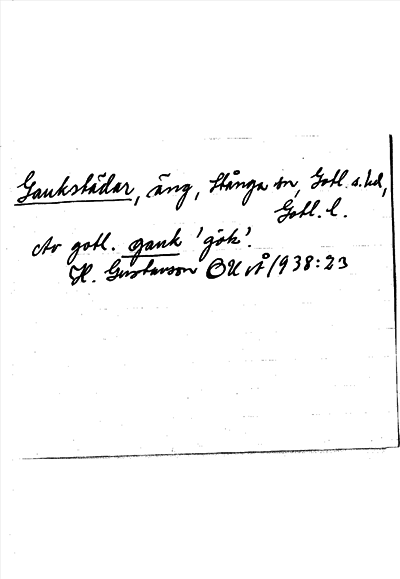 Gaukstädar, äng, Stånga sn, Gotl. s. hd,
Gotl. l.
Av gotl. gauk 'gök'.
H. Gustavson OUÅ 1938:23